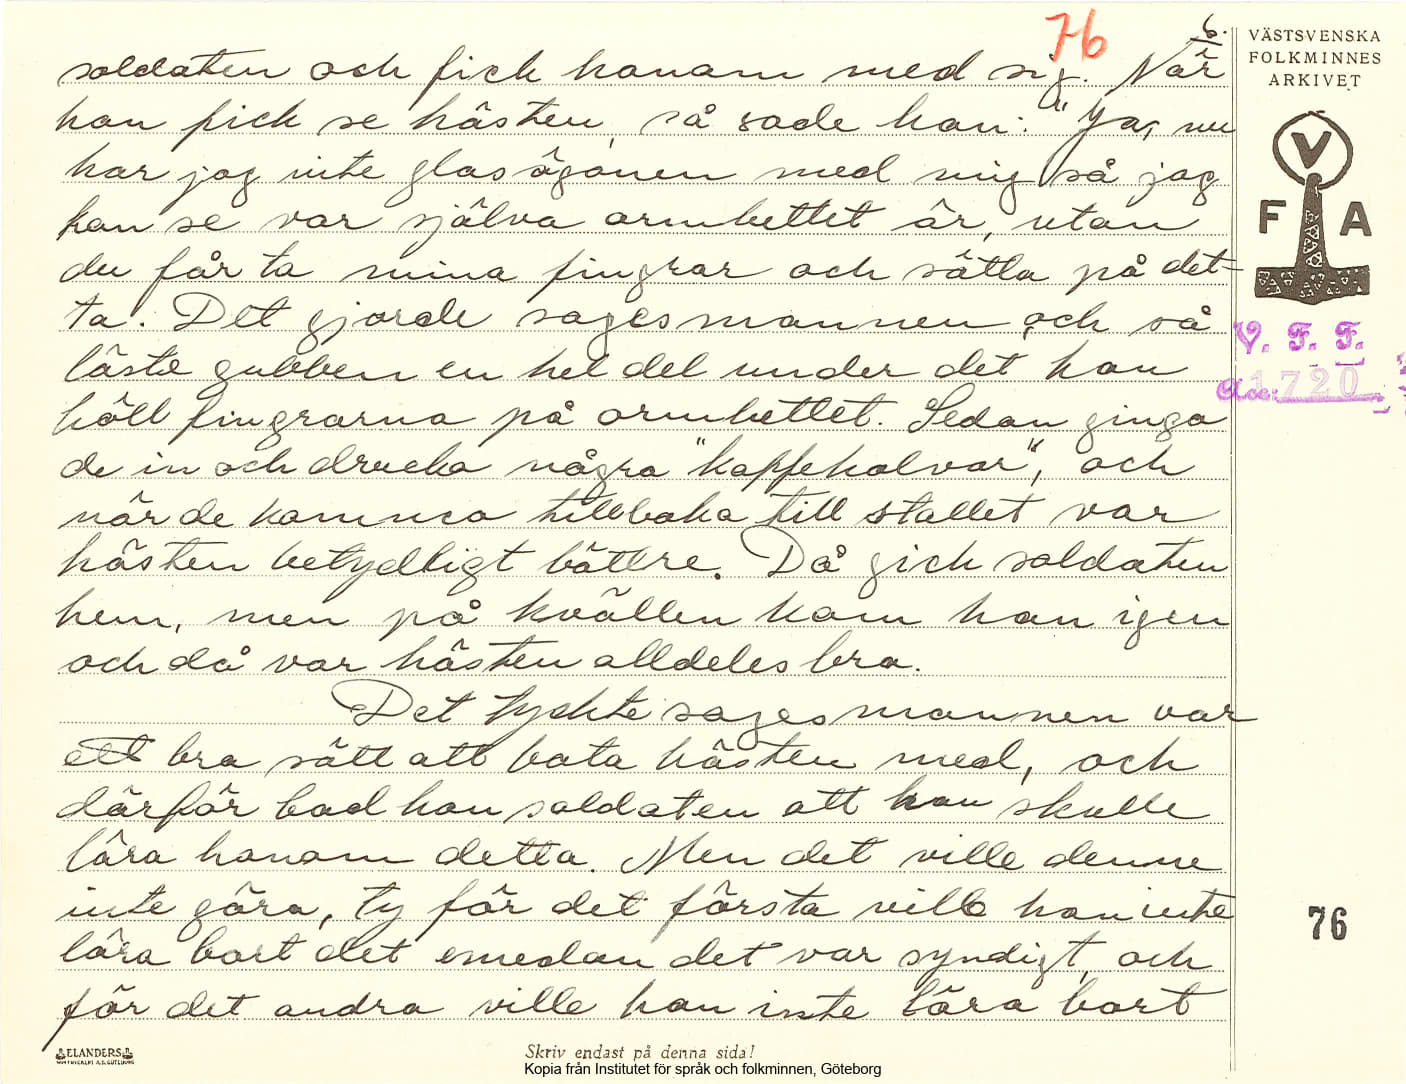 76
6.
soldaten och fick honom med sig. När
han fick se hästen, så sade han: "Ja, nu
har jag inte glasögonen med mig så jag
kan se var själva ormbettet är, utan
du får ta mina fingrar och sätta på det-
ta. Det gjorde sagesmannen och så
läste gubben en hel del under det han
höll fingrarna på ormbettet. Sedan gingo
de in och drucko några "kaffehalvor", och
när de kommo tillbaka till stallet var
hästen betydligt bättre. Då gick soldaten
hem, men på kvällen kom han igen
och då var hästen alldeles bra.
Det tyckte sagesmannen var
ett bra sätt att bota hästen med, och
därför bad han soldaten att han skulle
lära honom detta. Men det ville denne
inte göra, ty för det första ville han inte
lära bort det emedan det var syndigt, och
för det andra ville han inte lära bort
VÄSTSVENSKA
FOLKMINNES
ARKIVET
V
F A
V. F. F.
Acc: 1720
76
ELANDERS
Skriv endast på denna sida!
Kopia från Institutet för språk och folkminnen, Göteborg